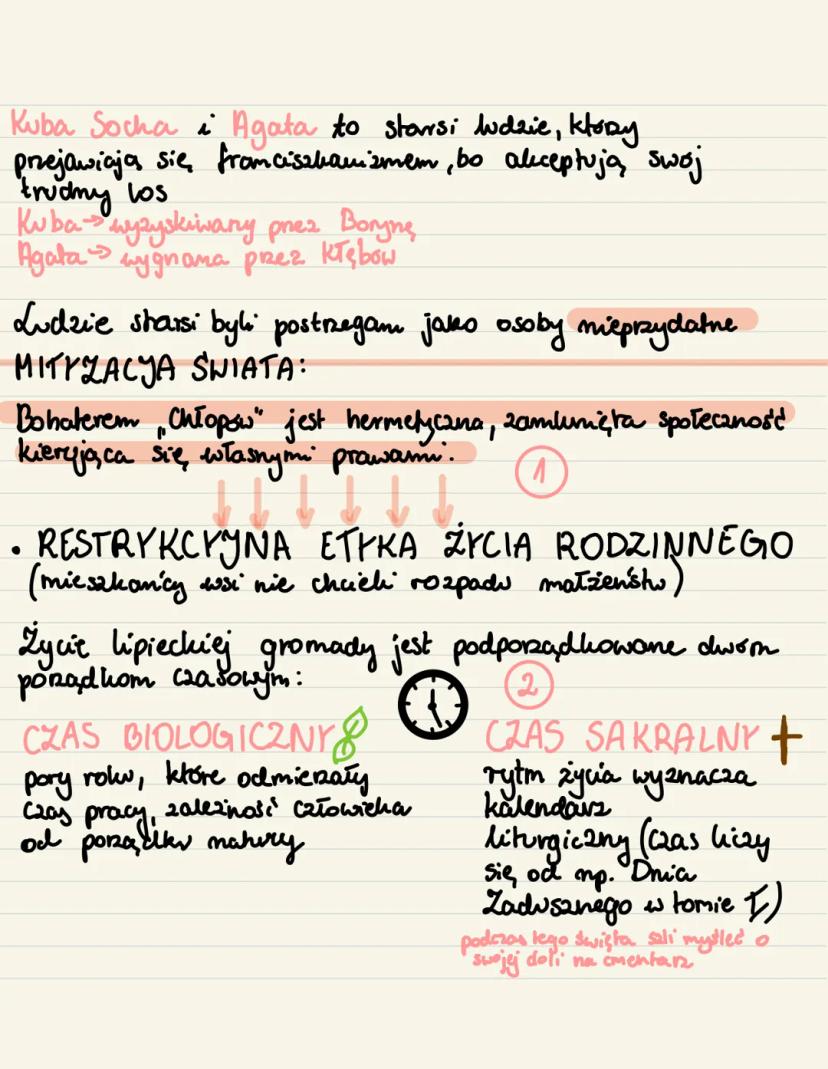 Kuba Socha i Agata to starsi ludzie, którzy
przejawiają się franciszkanizmem, bo akceptują swój
trudny los
Kuba → wyzyskiwany przez Borynę
Agata → wygnana przez Kłębów
Ludzie starsi byli postrzegani jako osoby nieprzydatne
MITYZACJA ŚWIATA:
Bohaterem „Chłopów" jest hermetyczna, zamknięta społeczność
kierująca się własnymi prawami.
1
• RESTRYKCYJNA ETYKA ŻYCIA RODZINNEGO
(mieszkańcy wsi nie chcieli rozpadu małżeństw)
Życie lipieckiej gromady jest podporządkowane dwóm
porządkom czasowym:
2
CZAS BIOLOGICZNY
pory roku, które odmierzały
czas pracy, zależność człowieka
od porządku natury
CZAS SAKRALNY
rytm życia wyznacza
kalendarz
liturgiczny (czas liczy
się od np. Dnia
Zadusznego w tomie I)
podczas tego święta szli myśleć o
swojej doli na cmentarz